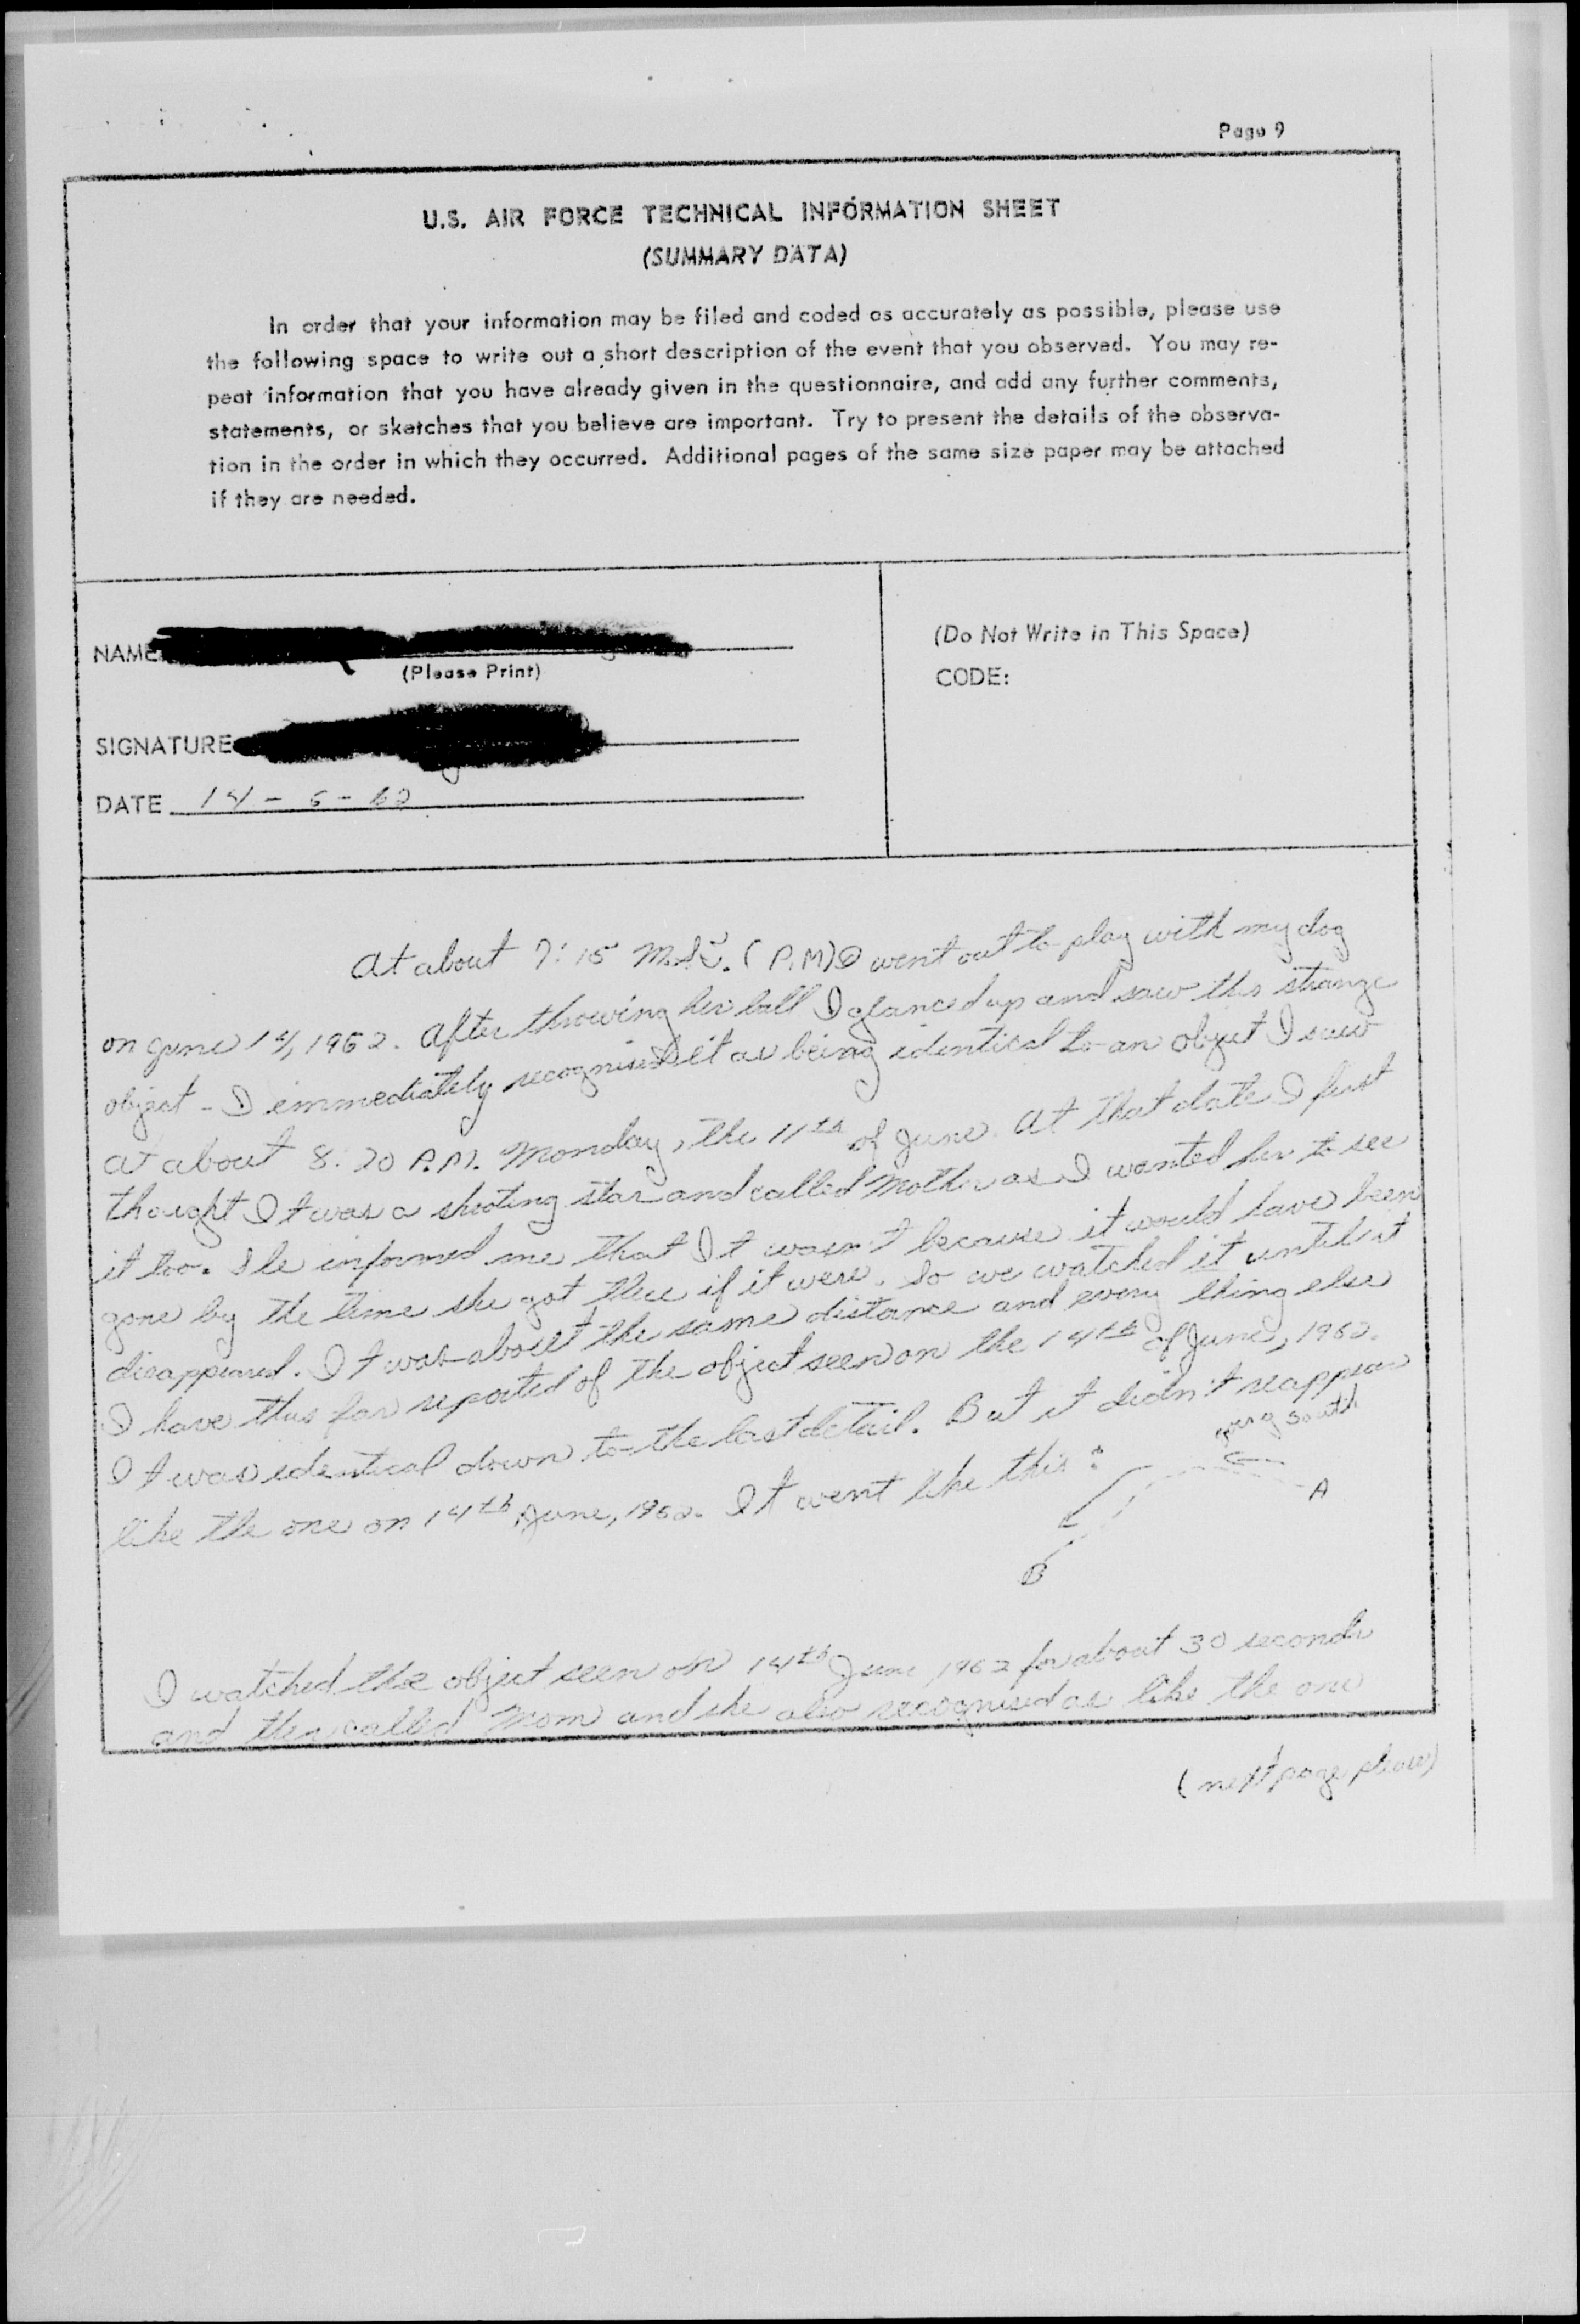 Page 9
U.S. AIR FORCE TECHNICAL INFORMATION SHEET
(SUMMARY DATA)
In order that your information may be filed and coded as accurately as possible, please use
the following space to write out a short description of the event that you observed. You may re-
peat information that you have already given in the questionnaire, and add any further comments,
statements, or sketches that you believe are important. Try to present the details of the observa-
tion in the order in which they occurred. Additional pages of the same size paper may be attached
if they are needed.
NAME
(Please Print)
SIGNATURE
DATE 14 - 6 - 62
(Do Not Write in This Space)
CODE:
At about 7:15 M.S.T. (P.M) I went out to play with my dog
on June 14, 1962. After throwing her ball I glanced up and saw this strange
object - I immediately recognised it as being identical to an object I saw
at about 8:20 P.M. Monday, the 11th of June. At that date I first
thought It was a shooting star and called Mother as I wanted her to see
it too. She informed me that It wasn't because it would have been
gone by the time she got there if it were. So we watched it until it
disappeared. It was about the same distance and every thing else
I have thus far reported of the object seen on the 14th of June, 1962.
It was identical down to the last detail. But it didn't reappear
like the one on 14th June, 1962. It went like this:
going South
A
B
I watched the object seen on 14th June 1962 for about 30 seconds
and then called Mom and she also recognised as like the one
(next page please)